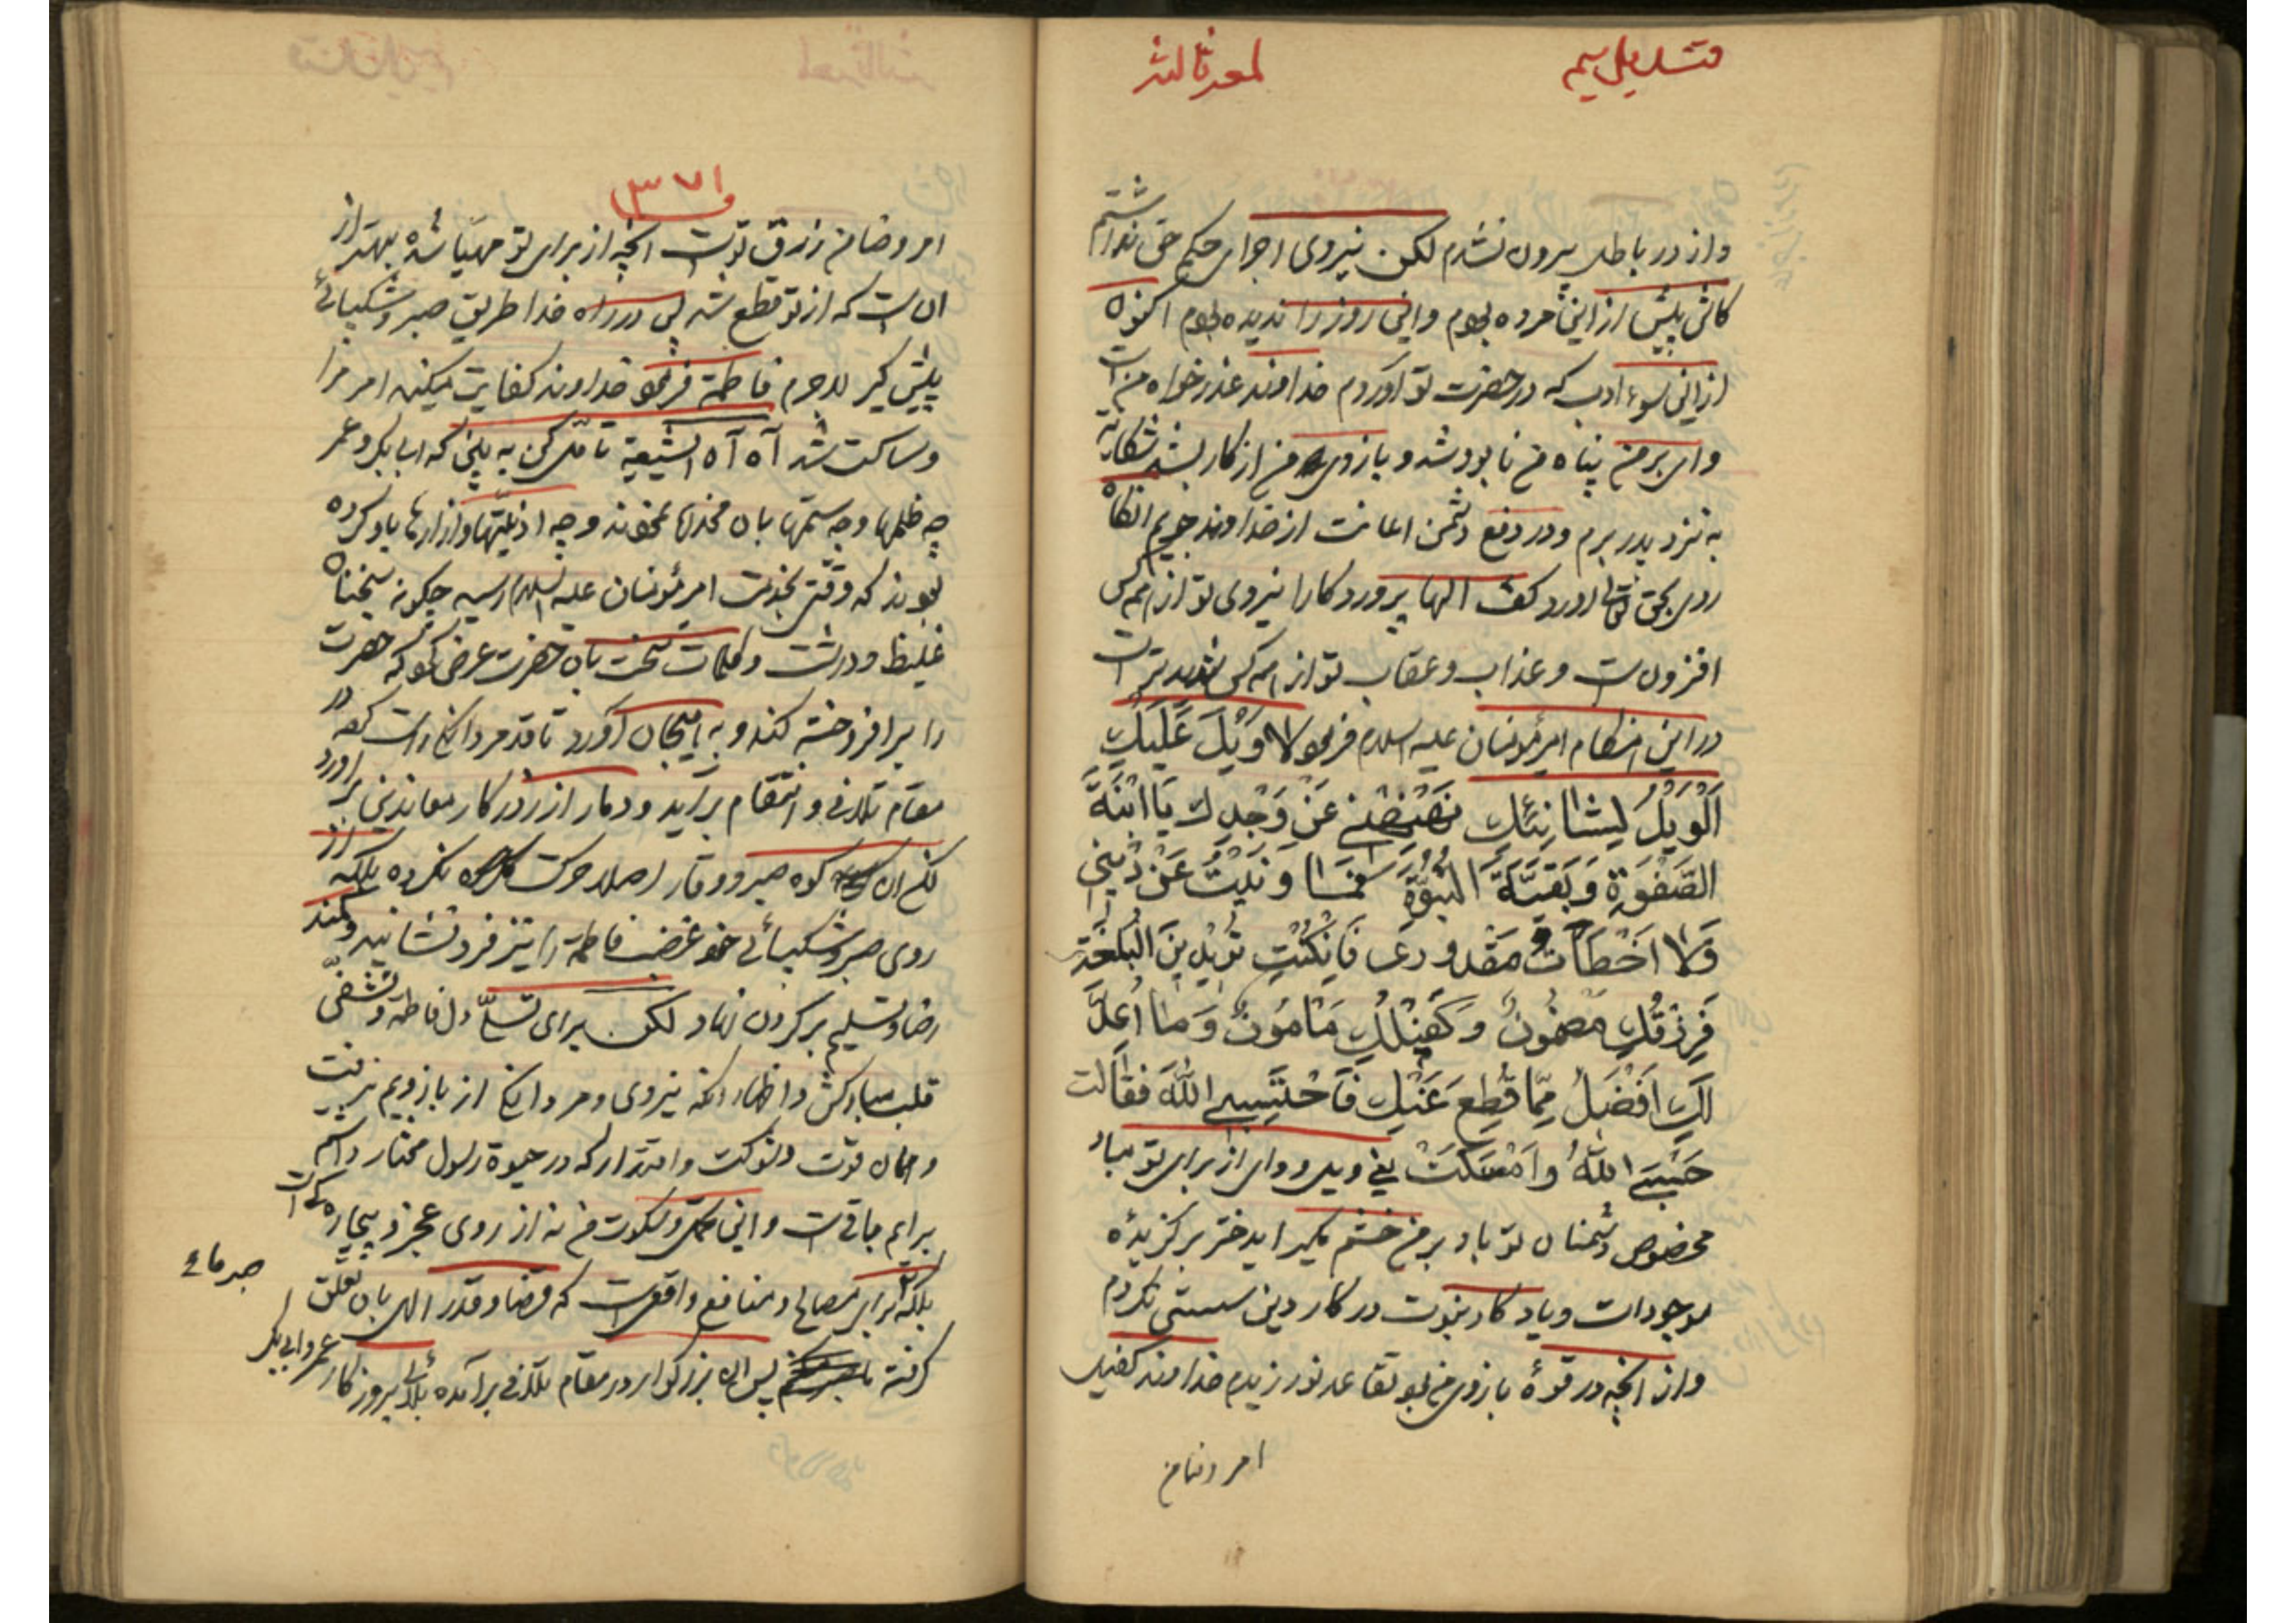 لمعه ثالثه
واز در باطل بیرون نشدم لکن نیروی اجرای حکم حق نداشتم
کاش پیش از این مرده بودم واین روز را ندیده بودم اکنون
از این سوء ادب که در حضرت تو آوردم خداوند عذر خواه من است
وای بر من پناه من نابود شد و بازوی من از کار بشد شکایت
به نزد پدر برم ودر دفع دشمن اعانت از خداوند جویم انگاه
روی بحق تعالی اورد کفت الها پروردکارا نیروی تو از همه کس
افزون است وعذاب وعقاب تو از همه کس شدیدتر است
در این هنکام امیرمؤمنان علیه السلام فرمود لا وَیْلَ عَلَیْكِ
اَلْوَیْلُ لِشانِئِكِ نَهْنِهْنی عَنْ وَجْدِكِ یَا ابْنَةَ
الصَّفْوَةِ وَبَقیَّةَ النُّبُوَّةِ فَمٰا وَنَیْتُ عَنْ دینی
وَلا اَخْطَأتُ مَقْدوری فَاِنْ كُنْتِ تُریدینَ الْبُلْغَةَ
فَرِزْقُكِ مَضْمُونٌ وَ كَفیلُكِ مَاْمُونٌ وَ ما اُعِدَّ
لَكِ اَفْضَلُ مِمّا قُطِعَ عَنْكِ فَاحْتَسِبِی اللّٰهَ فقالت
حَسْبِیَ اللّٰهُ واَمْسَكَتْ یعنی ویل و وای از برای تو مباد
مخصوص دشمنان تو باد بر من خشم مکیر ایدختر برکزیدهٔ
موجودات ویادکار نبوت در کار دین سستی نکردم
واز انچه در قوهٔ بازوی من بود تقاعد نورزیدم خداوند کفیل
امر وضامن
۳۷۱
امر وضامن رزق توست انچه از برای تو مهیّا شده بهتر از
ان است که از تو قطع شد پس در راه خدا طریق صبر وشکیبائی
پیش کیر لاجرم فاطمة فرمود خداوند کفایت میکند امر مرا
وساکت شد آه آه الشیعیة تامّل کن به بین که ابابکر و عمر
چه ظلمها وچه ستمها بان مخدره نمودند وچه اذیّتها وازارها باو کرده
بودند که وقتی بخدمت امیرمؤمنان علیه السلام رسید چکونه سخنان
غلیظ ودرشت وکلمات سخت بان حضرت عرض نمود که حضرت
را برافروخته کند و به هیجان آورد تا قد مردانکی راست کند در
مقام تلافی و انتقام برآید ودمار از روزکار معاندین براورد
لکن ان کوه صبر و وقار اصلا حرکت نکرده بلکه از
روی صبر وشکیبائی خود غضب فاطمة را نیز فرو نشانید وکمند
رضا وتسلیم بر کردن نهاد لکن برای تسلّی دل فاطمه وتشفی
قلب مبارکش واظهار انکه نیروی ومردانکی از بازویم نرفت
وهمان قوت وشوکت واقتدار که در حیوة رسول مختار داشتم
برایم باقی است واین وسکوت من نه از روی عجز و بیچاره کی است
بلکه برای مصالح ومنافع واقعی است که قضا وقدر الهی بان تعلق
کرفته پس ان بزرکوار در مقام تلافی برآمده بلائی بروزکار عمر وابی بکر